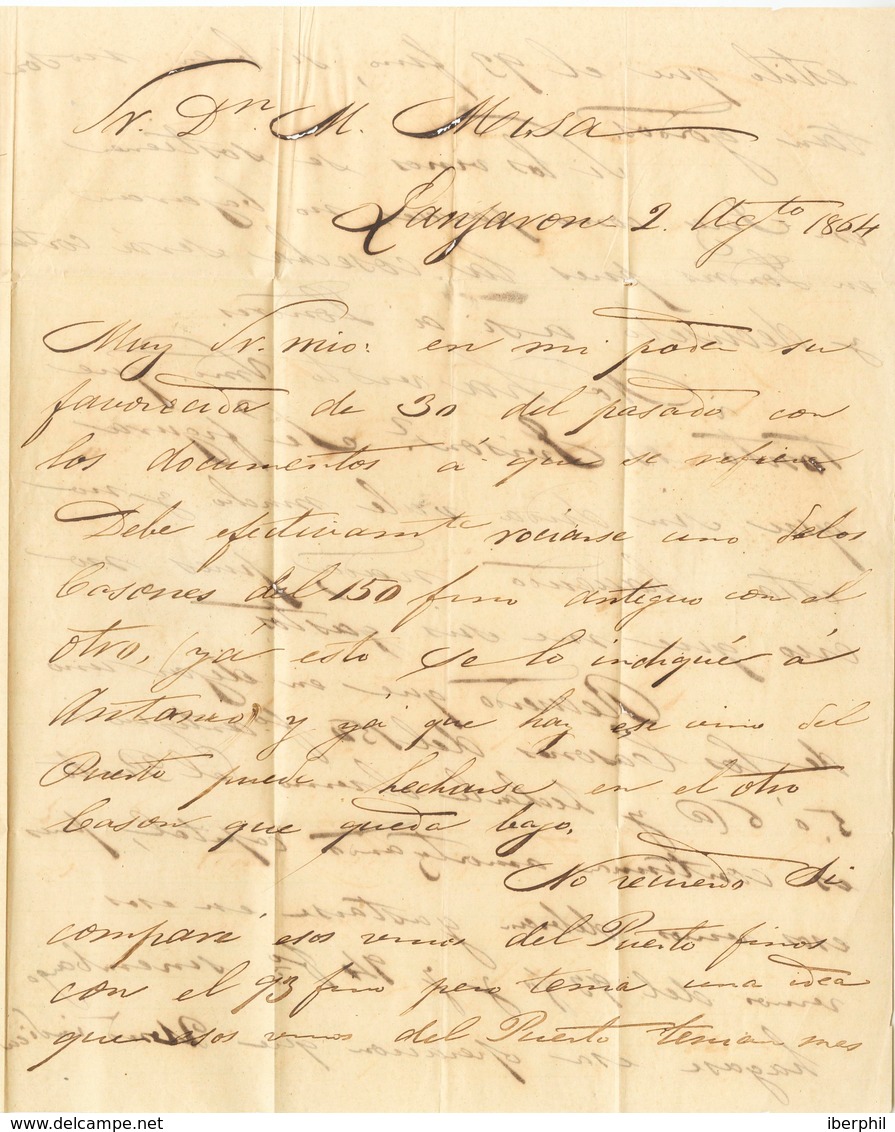 Sr. Dn. M. Misa
Lanjaron 2. Agto 1864
Muy Sr. mio: en mi poder su
favorecida de 30 del pasado con
los documentos á que se refiere
Debe efectivamte rociarse uno delos
Casones del 150 fino antiguo con el
otro, (yá esto se lo indiqué á
Antonio) y yá que hay ese vino del
Puerto puede hecharse en el otro
Cason que queda bajo.
No recuerdo si
comparé esos vinos del Puerto finos
con el 93 fino pero tenia una idea
que esos vinos del Puerto tenian mas
delcampe.net
iberphil